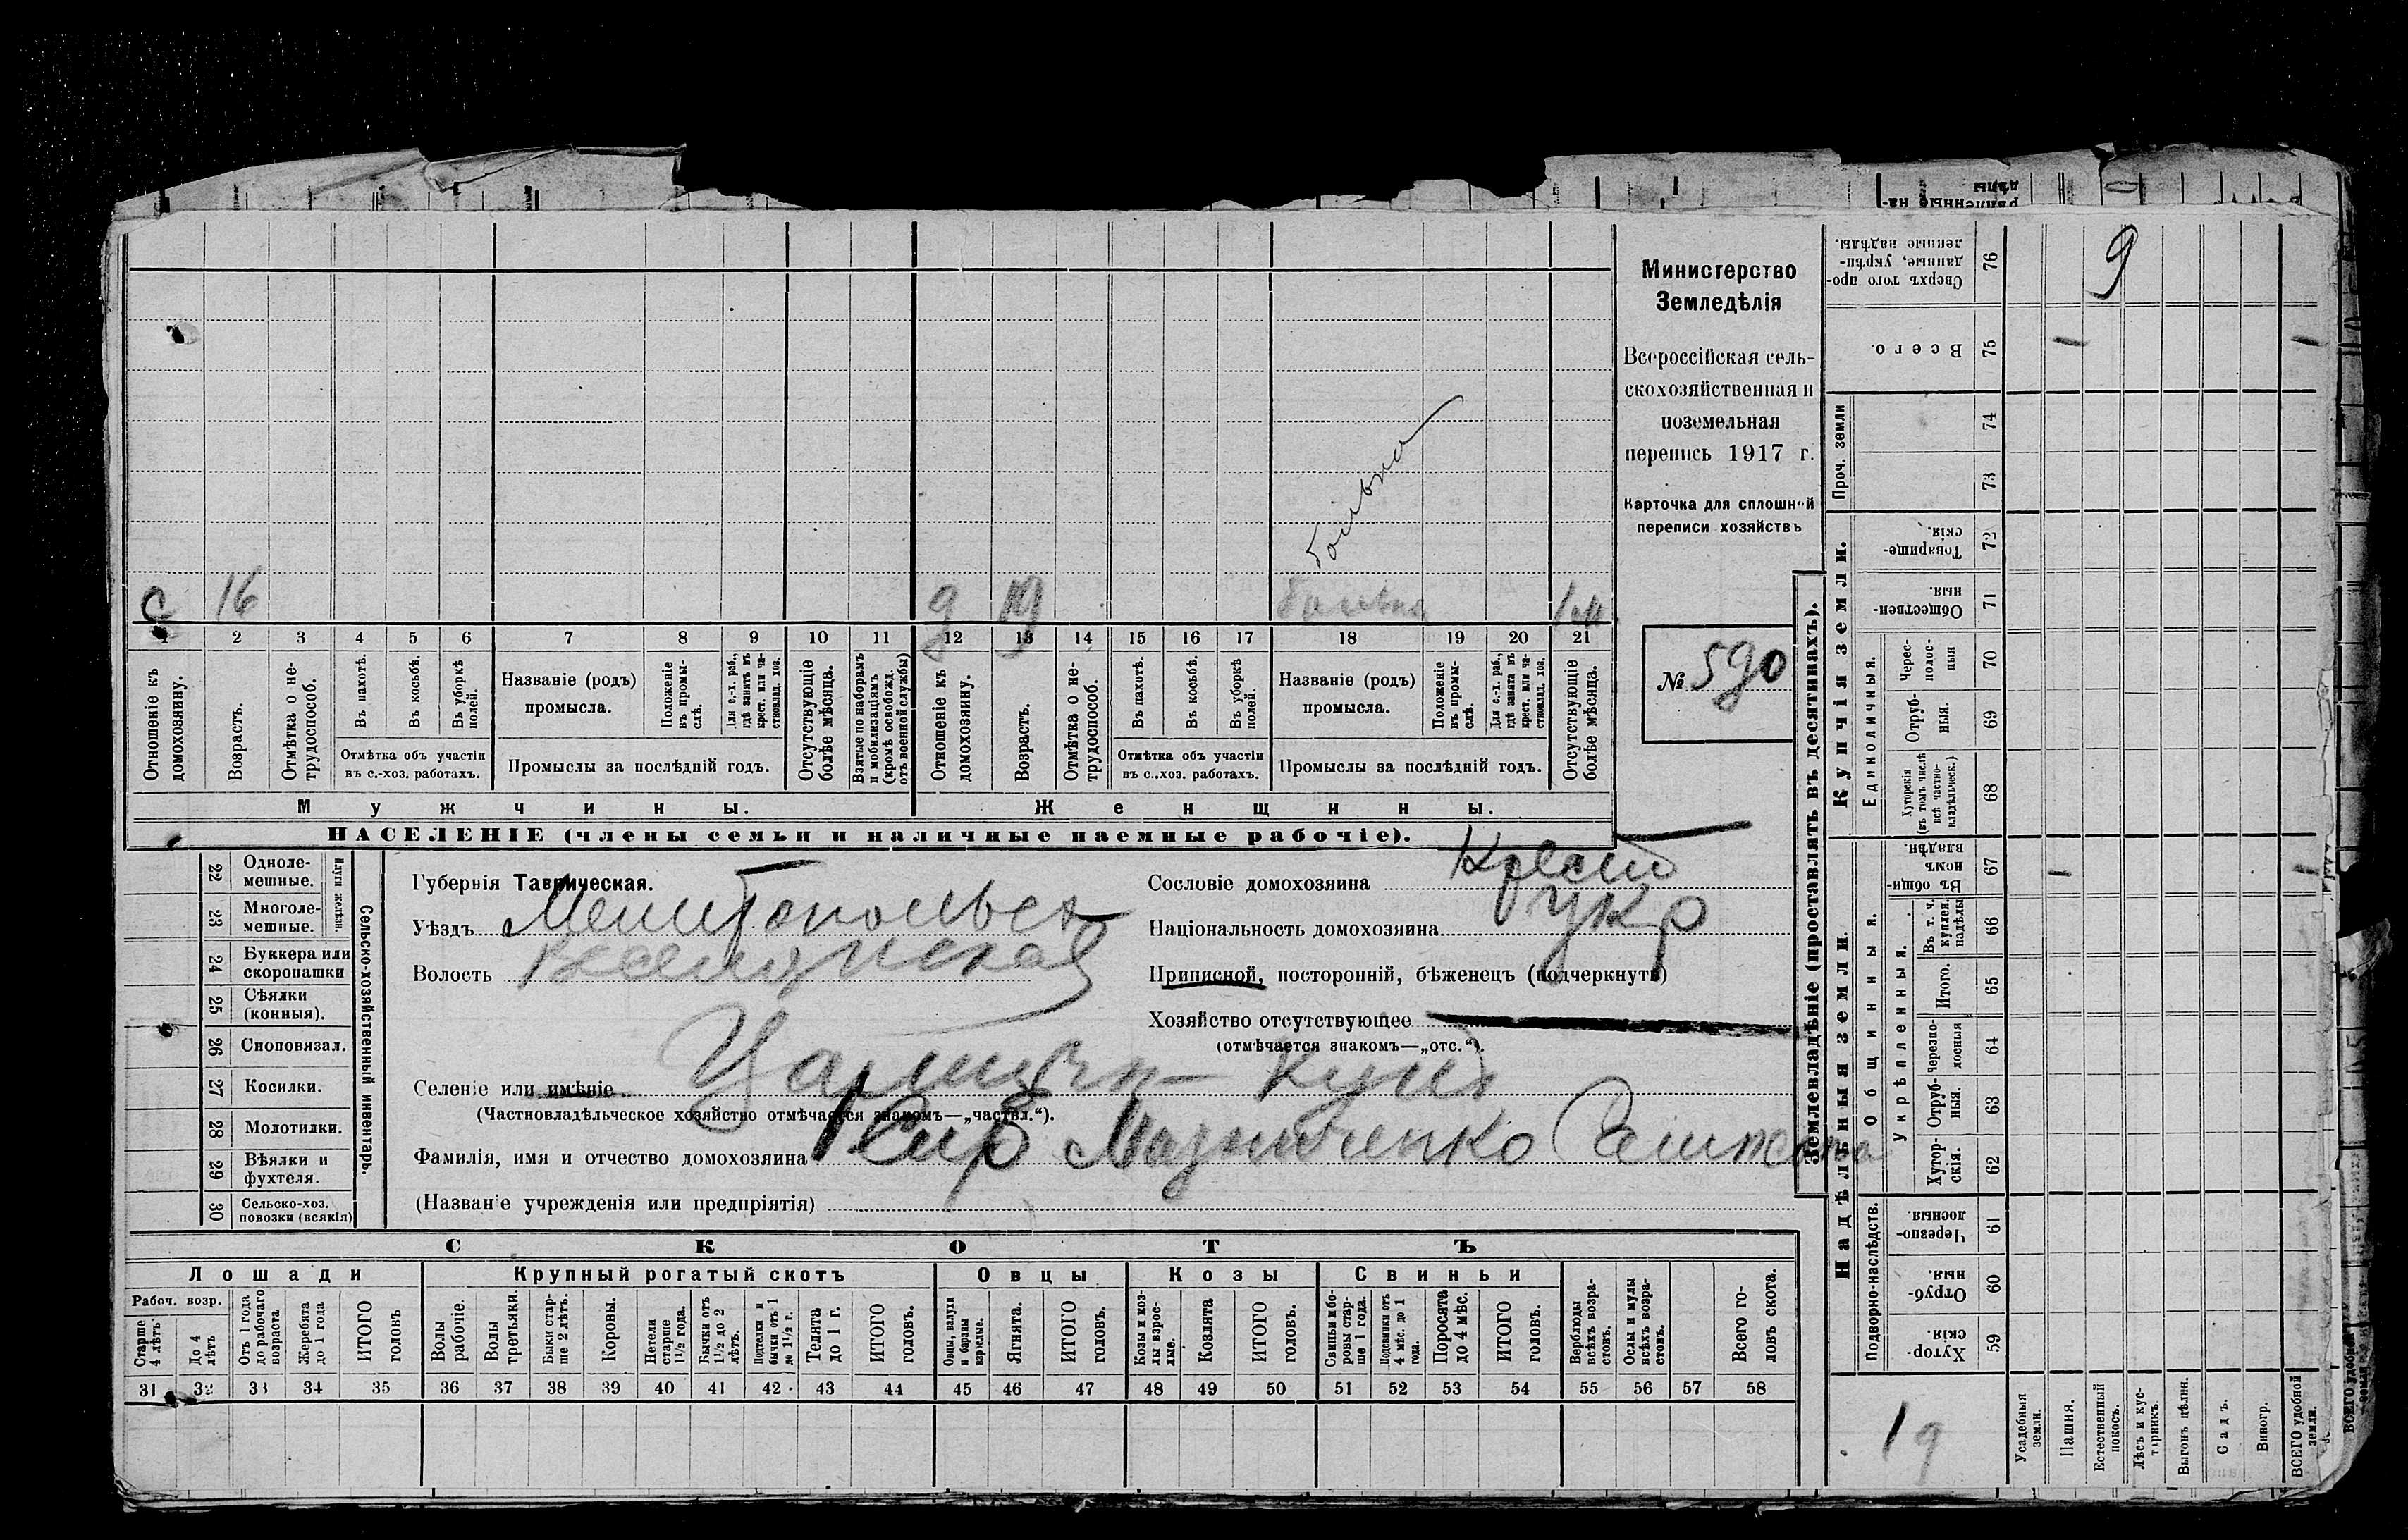 Министерство
Земледѣлія
Всероссійская сель-
скохозяйственная и
поземельная
перепись 1917 г.
Карточка для сплошной
переписи хозяйствъ
№ 590
больна
С 16
больна
1 2 3 4 5 6 7 8 9 10 11 12 13 14 15 16 17 18 19 20 21
Отношеніе къ домохозяину.
Возрастъ.
Отмѣтка о не-трудоспособ.
Въ пахотѣ.
Въ косьбѣ.
Въ уборкѣ полей.
Отмѣтка объ участіи
въ с.-хоз. работахъ.
Названіе (родъ)
промысла.
Положеніе въ промы-слѣ.
Для с.-х. раб., гдѣ занятъ въ крест. или ча-стновлад. хоз.
Промыслы за послѣдній годъ.
Отсутствующіе болѣе мѣсяца.
Взятые по наборамъ и мобилизаціямъ (кромѣ освобожд. отъ военной службы)
Отношеніе къ домохозяину.
Возрастъ.
Отмѣтка о не-трудоспособ.
Въ пахотѣ.
Въ косьбѣ.
Въ уборкѣ полей.
Отмѣтка объ участіи
въ с.-хоз. работахъ.
Названіе (родъ)
промысла.
Положеніе въ промы-слѣ.
Для с.-х. раб., гдѣ занята въ крест. или ча-стновлад. хоз.
Промыслы за послѣдній годъ.
Отсутствующіе болѣе мѣсяца.
Мужчины.
Женщины.
НАСЕЛЕНІЕ (члены семьи и наличные наемные рабочіе).
Сельско-хозяйственный инвентарь.
Плуги желѣзн.
22 Одноле-мешные.
23 Многоле-мешные.
24 Буккера или скоропашки
25 Сѣялки (конныя).
26 Сноповязал.
27 Косилки.
28 Молотилки.
29 Вѣялки и фухтеля.
30 Сельско-хоз. повозки (всякія)
Губернія Таврическая.
Уѣздъ Мелитопольск
Волость
Сословіе домохозяина крест
Національность домохозяина укр
Приписной, посторонній, бѣженецъ (подчеркнуть)
Хозяйство отсутствующее
(отмѣчается знакомъ—„отс.“).
Селеніе или имѣніе Царицын Кут
(Частновладѣльческое хозяйство отмѣчается знакомъ—„частвл.“).
Фамилія, имя и отчество домохозяина Сир
(Названіе учрежденія или предпріятія)
СКОТЪ
Лошади
Крупный рогатый скотъ
Овцы
Козы
Свиньи
Рабоч. возр.
Старше 4 лѣтъ
До 4 лѣтъ
Отъ 1 года до рабочаго возраста
Жеребята до 1 года
ИТОГО головъ
Волы рабочіе.
Волы третьяки.
Быки стар-ше 2 лѣтъ.
Коровы.
Нетели старше 1½ года.
Бычки отъ 1½ до 2 лѣтъ.
Подтелки и бычки отъ 1 до 1½ г.
Телята до 1 г.
ИТОГО головъ.
Овцы, валухи и бараны взрослые.
Ягнята.
ИТОГО головъ.
Козы и коз-лы взрос-лые.
Козлята
ИТОГО головъ.
Свиньи и бо-ровы стар-ше 1 года.
Подсвинки отъ 4 мѣс. до 1 года.
Поросята до 4 мѣс.
ИТОГО головъ.
Верблюды всѣхъ возра-стовъ.
Ослы и мулы всѣхъ возра-стовъ.
Всего го-ловъ скота.
31 32 33 34 35 36 37 38 39 40 41 42 43 44 45 46 47 48 49 50 51 52 53 54 55 56 57 58
Землевладѣніе (проставлять въ десятинахъ).
Надѣльныя земли.
Купчія земли.
Проч. земли
Подворно-наслѣдств.
Общинныя.
Укрѣпленныя.
Единоличныя.
Сверхъ того про-данные, укрѣп-ленные надѣлы. 76 9
Всего. 75
74
73
Товарище-скія. 72
Обществен-ныя. 71
Черес-полос-ныя 70
Отруб-ныя. 69
Хуторскія (въ томъ числѣ всѣ частно-владѣльческ.) 68
Въ общин-номъ владѣн. 67
Въ т. ч. куплен. надѣлы 66
Итого. 65
Черезпо-лосныя 64
Отруб-ныя. 63
Хутор-скія. 62
Черезпо-лосныя. 61
Отруб-ныя. 60
Хутор-скія. 59
19
Усадебныя земли.
Пашня.
Естественный покосъ.
Лѣсъ и кус-тарникъ.
Выгонъ цѣлин.
Садъ.
Виногр.
ВСЕГО удобной земли.